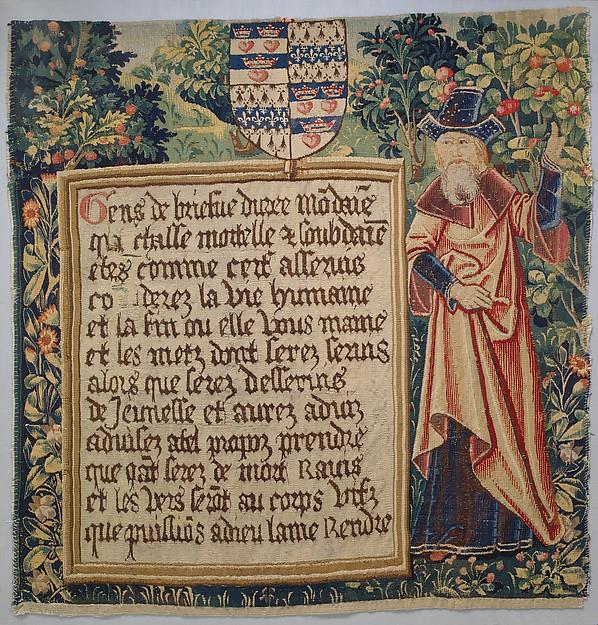 Gens de briefue duree mōdaīe
qui a chasse mortelle & soubdaīe
etes comme cerf asseruis
co derez la vie humaine
et la fin ou elle vous maine
et les metz dont serez seruis
alors que serez desseruis
de Jeunesse et aurez
aduisez a tel propoz prendre
que qāt serez de mort Rauis
et les vers serōt au corps vifz
que puissiōs a dieu lame Rendre